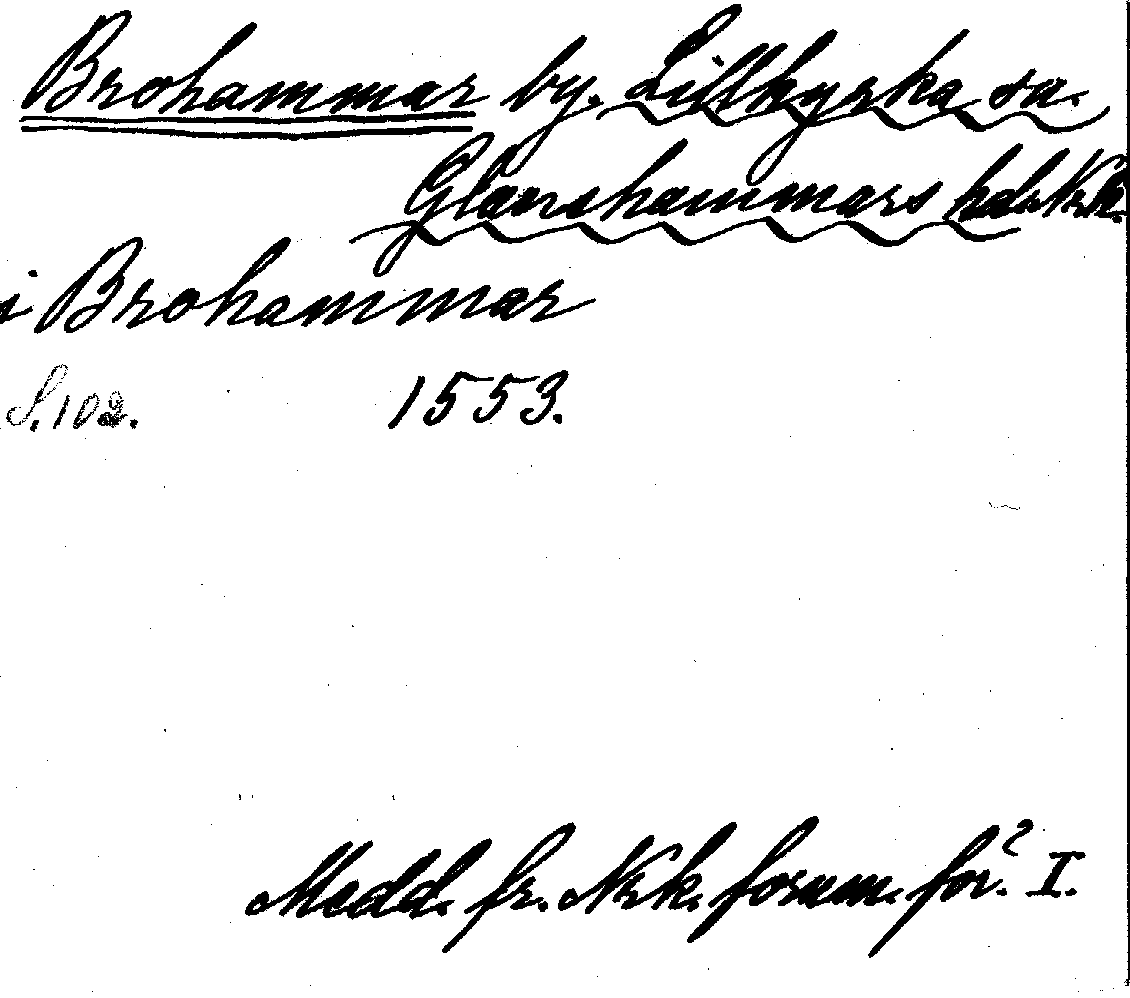 Brohammar by. Lillkyrka sn.
Glanshammars hd. Nrk.
i Brohammar
S. 102. 1553.
Medd. fr. Nrk. fornm. för. I.